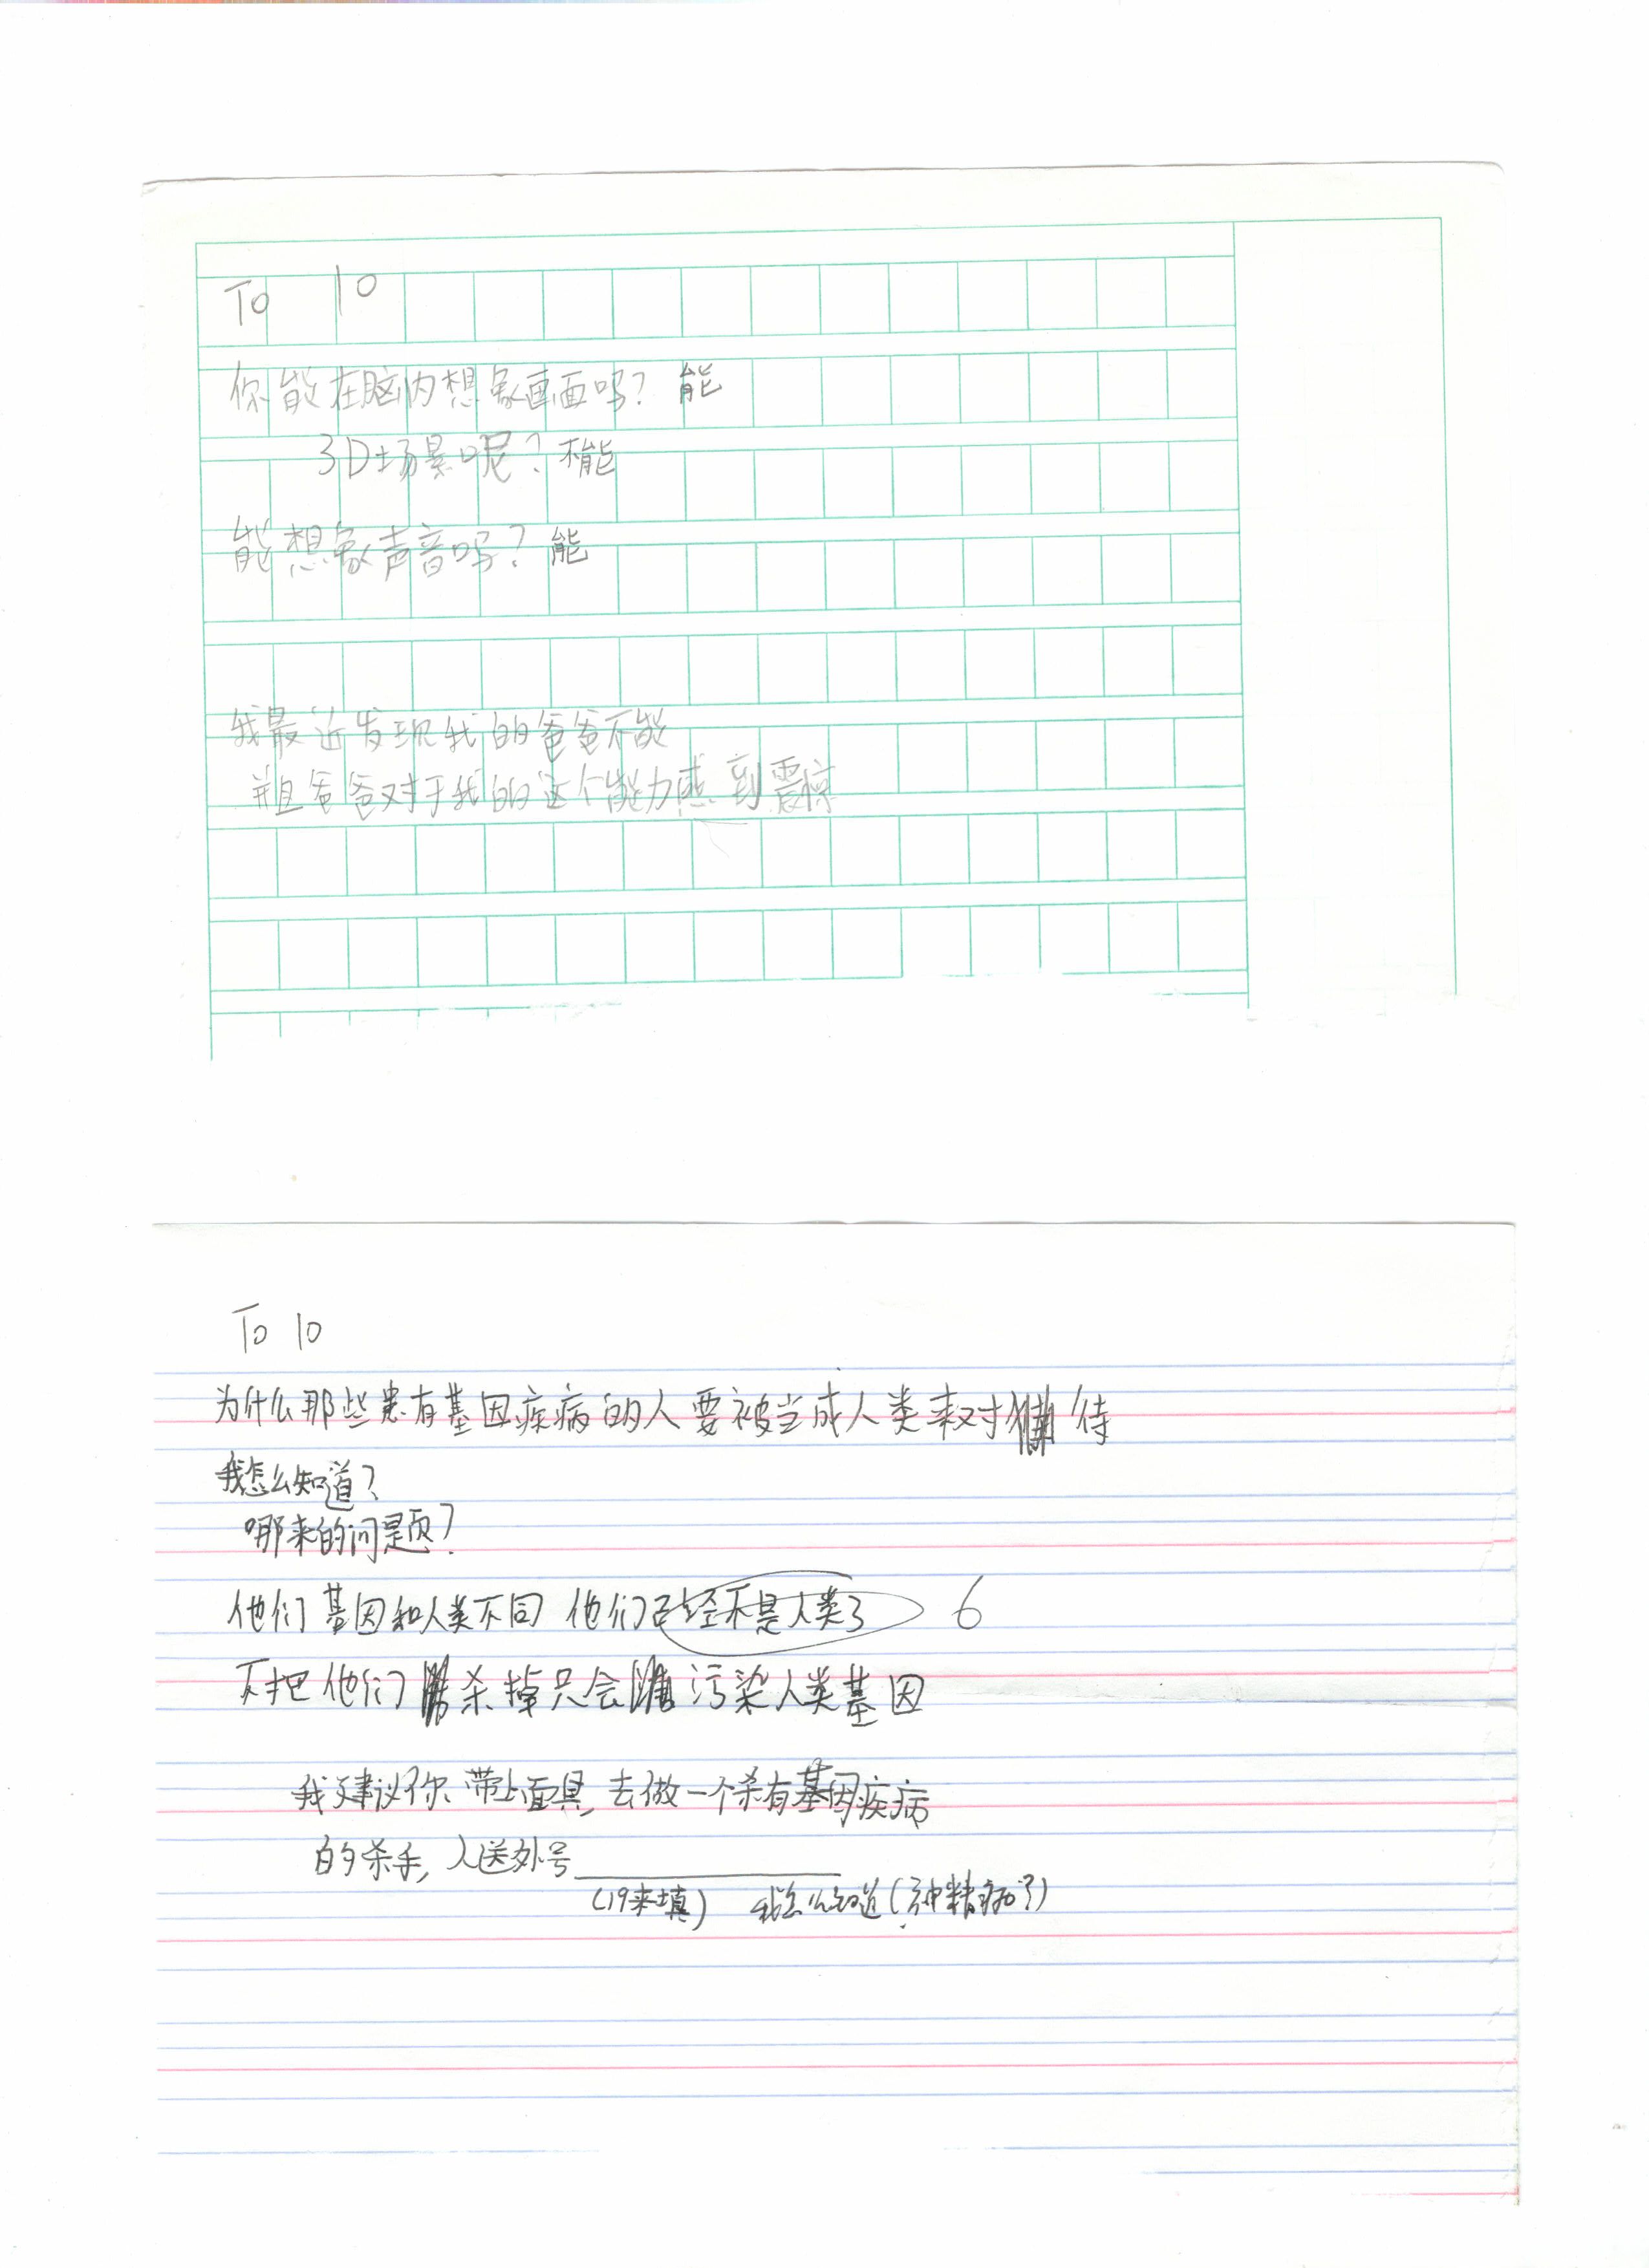 To 10
你能在脑内想象画面吗？能
3D场景呢？不能
能想象声音吗？能
我最近发现我的爸爸不能
并且爸爸对于我的这个能力感到震惊
To 10
为什么那些患有基因疾病的人要被当成人类来对待
我怎么知道？
哪来的问题？
他们基因和人类不同 他们已经不是人类了 6
不把他们杀掉只会污染人类基因
我建议你带上面具，去做一个杀有基因疾病
的杀手，人送外号
(19来填) 我怎么知道(神精病了)